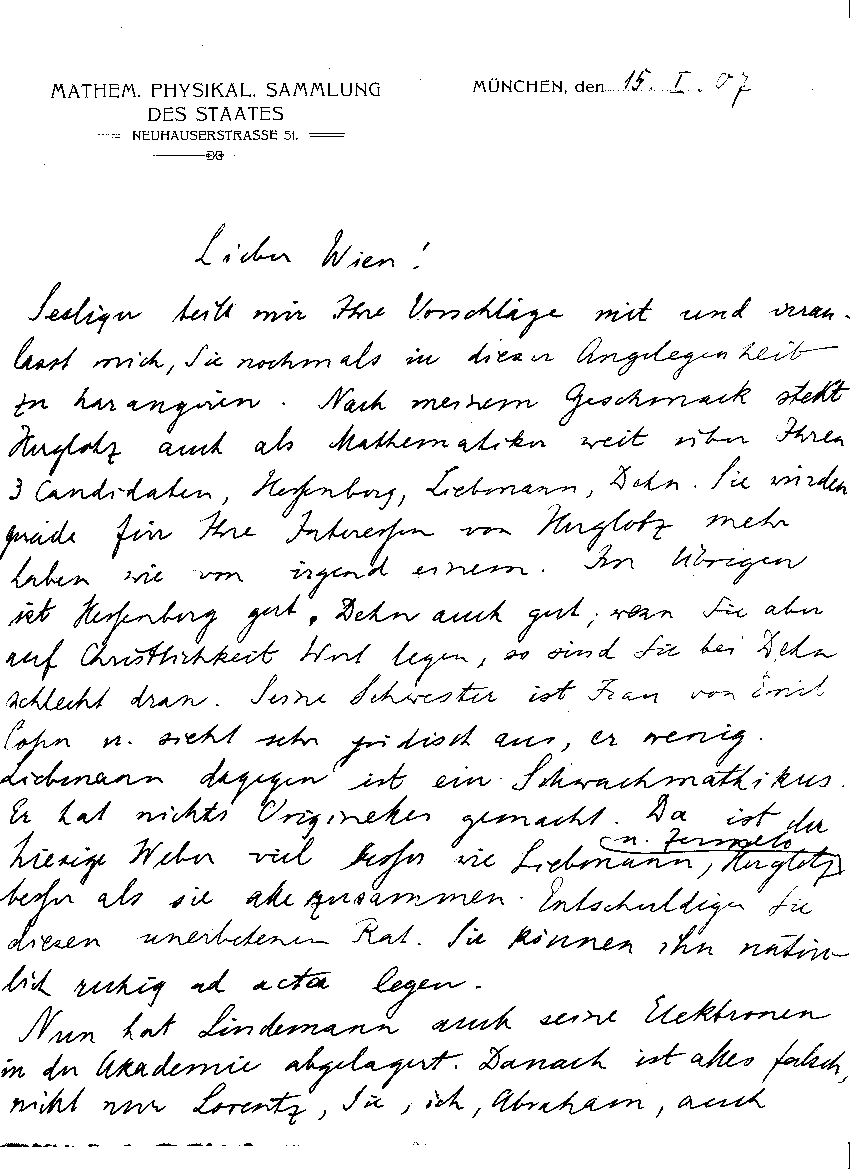 MATHEM. PHYSIKAL. SAMMLUNG
DES STAATES
NEUHAUSERSTRASSE 51.
MÜNCHEN, den 15. I. 07
Lieber Wien!
Seeliger teilt mir Ihre Vorschläge mit und veran-
lasst mich, Sie nochmals in dieser Angelegenheit
zu harangiren. Nach meinem Geschmack steht
Herglotz auch als Mathematiker weit über Ihren
3 Candidaten, Hessenberg, Liebmann, Dehn. Sie würden
gerade für Ihre Interessen von Herglotz mehr
haben wie von irgend einem. Im Übrigen
ist Hessenberg gut, Dehn auch gut; wenn Sie aber
auf Christlichkeit Wert legen, so sind Sie bei Dehn
schlecht dran. Seine Schwester ist Frau von Emil
Cohn u. sieht sehr jüdisch aus, er wenig.
Liebmann dagegen ist ein Schwachmathikus.
Er hat nichts Originelles gemacht. Da ist der
hiesige Weber viel besser wie Liebmann, Herglotz
u. Zermelo
besser als sie alle zusammen. Entschuldigen Sie
diesen unerbetenen Rat. Sie können ihn natür-
lich ruhig ad acta legen.
Nun hat Lindemann auch seine Elektronen
in der Akademie abgelagert. Danach ist alles falsch,
nicht nur Lorentz, Sie, ich, Abraham, auch